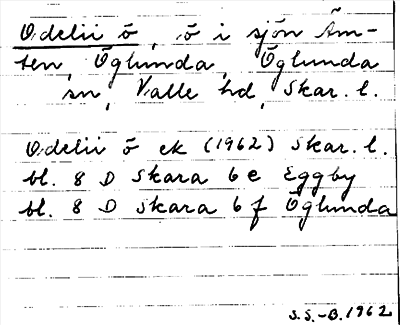 Odelii ö, ö i sjön Äm-
ten, Öglunda, Öglunda
sn, Valle hd, Skar. l.
Odelii ö ek (1962) Skar. l.
bl. 8 D Skara 6 e Eggby
bl. 8 D Skara 6 f Öglunda
S.S.-B. 1962